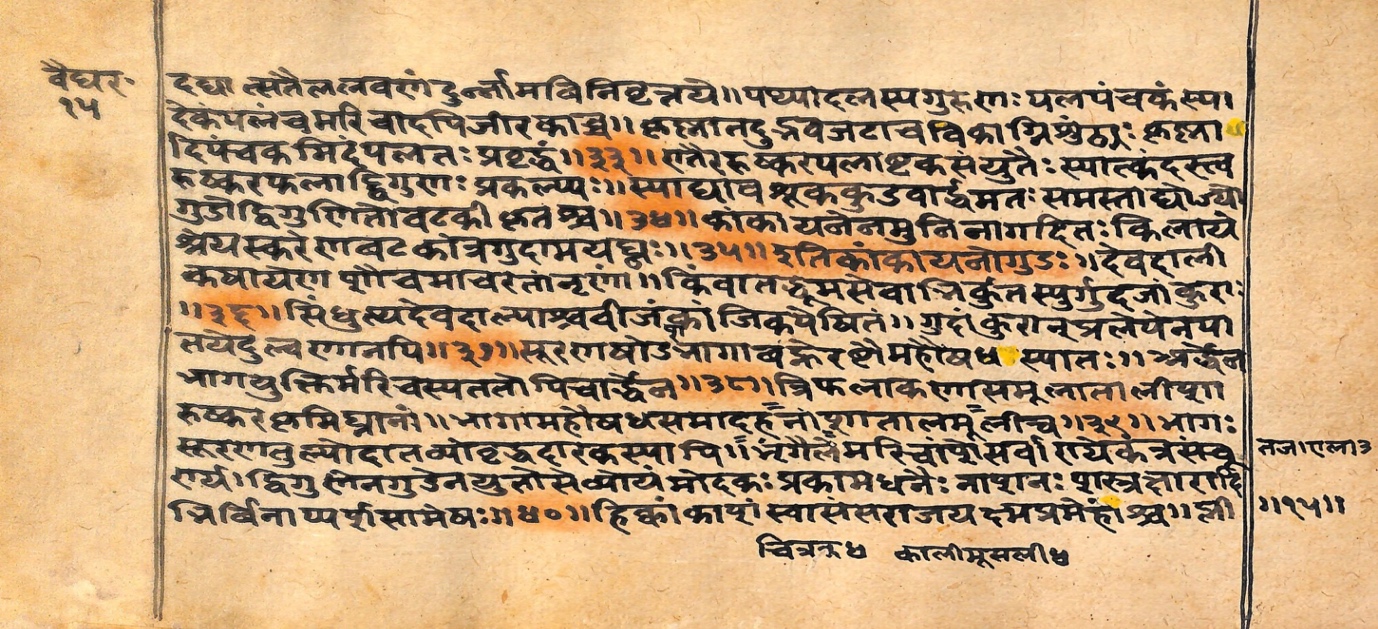 वैद्यर॰
१५
दद्या त्सतैललवणं दुर्न्नामविनिवृत्तये॥ पथ्यादलस्य गुरुणः पलपंचकं स्या
देकं पलं च मरिचादपि जीरकाच्च॥ कृष्णातदुद्भवजटाचविकाग्निशुंठ्यः कृष्णा
दिपंचकमिदं पलतः प्रवृद्धं॥३३॥ एतैररुष्करपलाष्टकसंयुतैः स्यात्कंदस्त्व
रुष्करफलाद्द्विगुणः प्रकल्प्यः॥ स्याद्यावशूककुडवार्द्धमतः समस्ताद्योज्यो
गुडो द्विगुणितो वटकी कृतश्च॥३४॥ कांकायनेन मुनिना गदितः किलायं
श्रेयस्करेण वटकोत्र गुदामयघ्नः॥३५॥ इति कांकायनो गुडः॥ देवदाली
कषायेण शौचमाचरतां नृणां॥ किं वा तद्धूमसेवाभिः कुतस्युर्गुदजांकुराः
॥३६॥ सिंधुत्थदेवदाल्याश्च बीजं कांजिकपेषितं॥ गुदांकुरान् प्रलेपेन पा
तयेदुल्वणानपि॥३७॥ सूरणषोडशभागा वह्नेरष्टौ महौषध स्यातः॥ अर्द्धेन
भागयुक्तिर्मरिचस्य ततोपि चार्द्धेन॥३८॥ त्रिफला कणा समूला तालीश
रुष्कर कृमिघ्नानां॥ भागा महौषधसमा दहनांशा तालमूली च॥३९॥ भागः
सूरणतुल्यो दातव्यो वृद्धदारकस्यापि॥ भृंगैले मरिचांशे सर्वाण्येकत्र संचू
र्ण्य। द्विगुणेन गुडेन युतो सेव्योयं मोदकः प्रकामधनैः नाशनः शस्त्रक्षारादि
भिर्विनाप्यर्शसामेषः॥४०॥ हिक्कां काशं स्वासं सराजयक्ष्मप्रमेहांश्च॥ प्ली
तजाएला३
॥१५॥
चित्रक४ कालीमूसली४